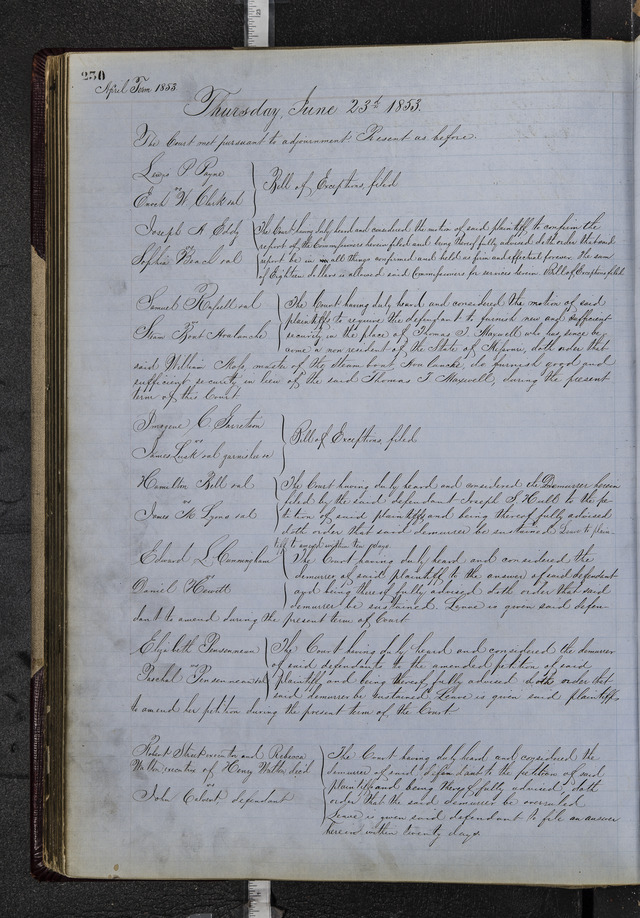 250
April Term 1853
Thursday, June 23d 1853.
The Court met pursuant to adjournment. Present as before.
Lewis P Payne
vs
Enoch W. Clark et al
Bill of Exceptions filed
Joseph A
vs
Sophia Beach et al
The Court having duly heard and considered the motion of said plaintiff to confirm the
report of the Commissioners herein filed and being thereof fully advised doth order that said
report be in all things confirmed and held as firm and effectual forever. The sum
of Eighteen dollars is allowed said Commissioners for services herein. Bill of Exceptions filed
Samuel et al
vs
Steam Boat Avalanche
The Court having duly heard and considered the motion of said
plaintiffs to require the defendant to furnish new and sufficient
security in the place of Thomas T. Maxwell who has since be
come a non resident of the State of Missouri, doth order that
said William master of the steam boat Avalanche, do furnish good and
sufficient security in lieu of the said Thomas T Maxwell, during the present
term of this Court
Imogene C. Garretson
vs
James Lusk et al garnishees
Bill of Exceptions filed
Hamilton Bell et al
vs
James M Lyons et al
The Court having duly heard and considered the Demurrer herein
filed by the said defendant Joseph S Hull to the pe
tition of said plaintiffs and being thereof fully advised
doth order that said demurrer be sustained Leave to plain
tiff to amend within ten days.
Edward L. Cunningham
vs
Daniel Hewitt
The Court having duly heard and considered the
demurrer of said plaintiff to the answer of said defendant
and being thereof fully advised doth order that said
demurrer be sustained. Leave is given said defen
dant to amend during the present term of Court
Elizabeth Pensenneau
vs
Paschal Pensenneau et al
The Court having duly heard and considered the demurrer
of said defendants to the amended petition of said
plaintiff and being thereof fully advised doth order that
said demurrer be sustained. Leave is given said plaintiffs
to amend her petition during the present term of the Court.
Robert executor and Rebecca
Walton executrix of Henry Walton decd
vs
John Calvert defendant
The Court having duly heard and considered the
demurrer of said defendant to the petition of said
plaintiff and being thereof fully advised, doth
order that the said demurrer be overruled
Leave is given said defendant to file an answer
herein within twenty days